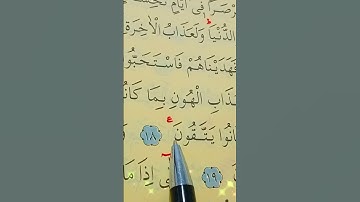 صَرْصَرًا فِىٓ أَيَّامٍ
الدُّنْيَا ۖ وَلَعَذَابُ الْاٰخِرَةِ
فَهَدَيْنَاهُمْ فَاسْتَحَبُّوا
الْهُونِ بِمَا كَانُوا
يَتَّقُونَ ﴿١٨﴾
﴿١٩﴾ إِذَا مَا